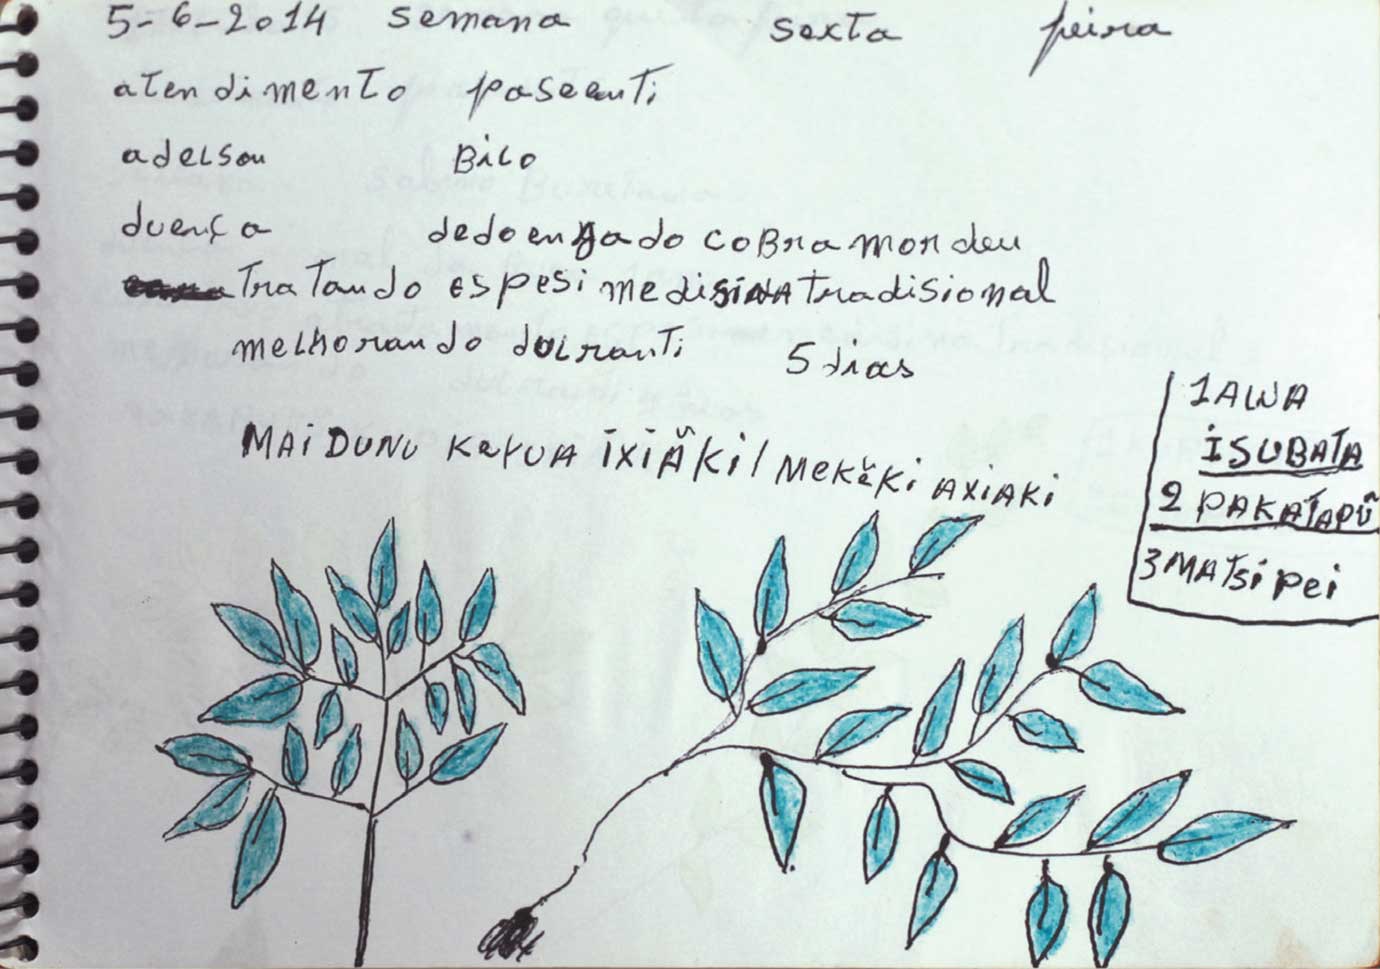 5-6-2014 semana sexta feira
atendimento paseenti
adelson BiLo
duença dedoengado coBramordeu
Tratando espesi medisina tradisional
meLhorando duLranti 5 dias
MAiDUNU KaYUA ixiãKi / MeKẽKi AXiAKi
1 AWA
iSUBATA
2 PAKATAPŨ
3 MATSi Pei